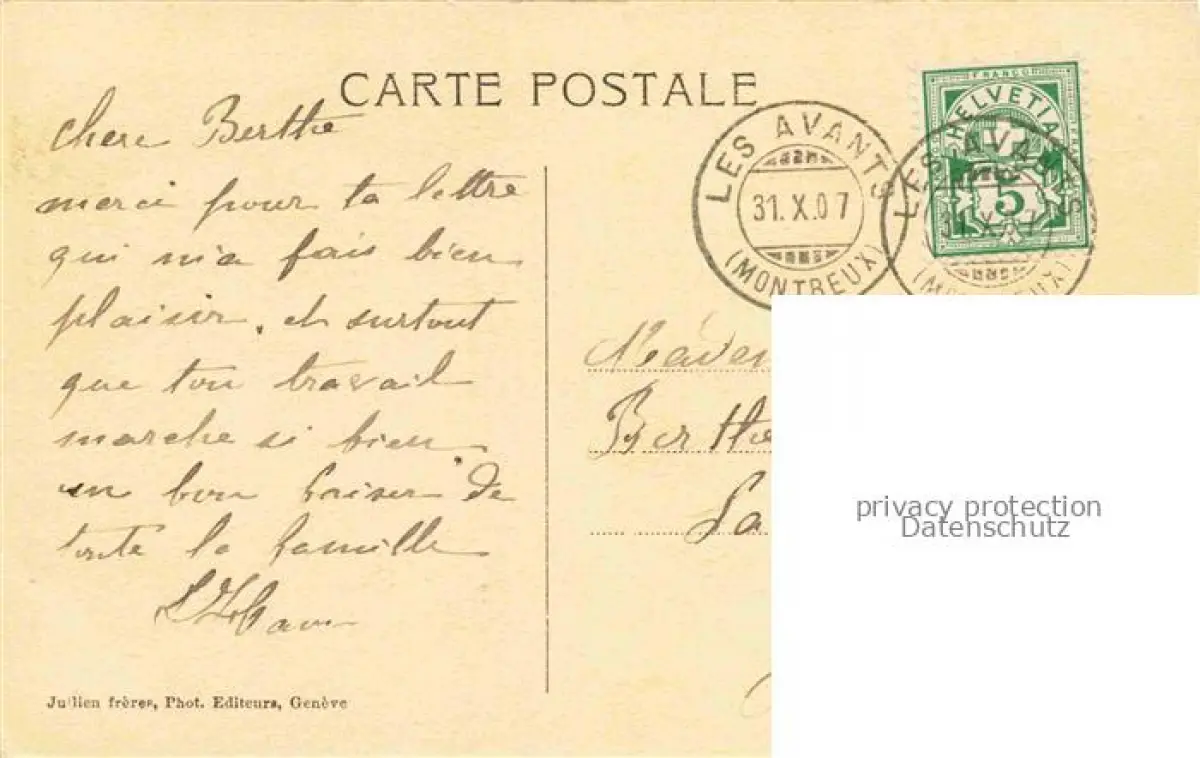 CARTE POSTALE
chere Berthe
merci pour ta lettre
qui m'a fais bien
plaisir, et surtout
que ton travail
marche si bien.
un bon baiser de
toute la famille
Jullien frères, Phot. Editeurs, Genève
LES AVANTS
31.X.07
(MONTREUX)
FRANCO
HELVETIA
5
LES AVANTS
31.X.07
(MONTREUX)
Berthe
La
privacy protection
Datenschutz